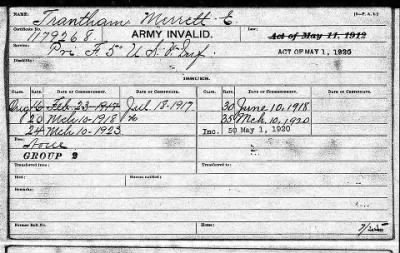 NAME: Trantham, Merrett E
Certificate No.
1179268.
ARMY INVALID.
Law: Act of May 11, 1912
Service: Pvt F. 5" U.S.V. Inf.
ACT OF MAY 1, 1920
Disability:
ISSUES.
RATE. DATE OF COMMENCEMENT. DATE OF CERTIFICATE. RATE. DATE OF COMMENCEMENT. DATE OF CERTIFICATE.
Orig 16 Feb. 23-1917 Jul 18-1917 30 June 10, 1918
20 Mch 10-1918 38 Mch 10, 1920
24 Mch 10-1923 Inc. 50 May 1, 1920
GROUP 2
Transferred from:
Remarks:
Former Roll No.
Home: